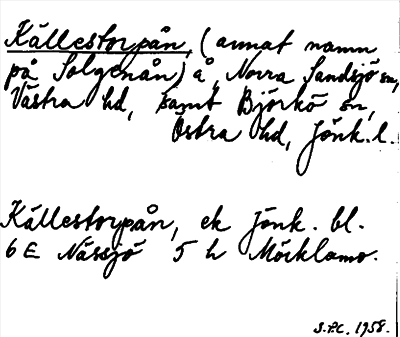 Källestorpån, (annat namn
på Solgenån) å, Norra Sandsjö sn,
Västra hd, samt Björkö sn,
Östra hd, Jönk. l.
Källestorpån, ek Jönk. bl.
6 E Nässjö 5 h Möcklamo.
S.P.C. 1958.